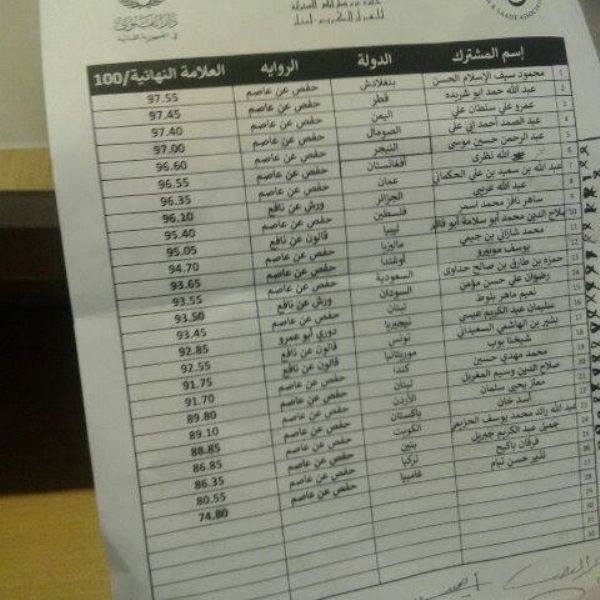 دار الفتوى
في الجمهورية اللبنانية
للقرآن الكريم - لبنان
& SAADE ASSOCIATION
إسم المشترك الدولة الروايه العلامة النهائية/100
1 محمود سيف الإسلام الحسن بنغلادش حفص عن عاصم 97.55
2 عبد الله حمد ابو شريده قطر حفص عن عاصم 97.45
3 عمرو علي سلطان علي اليمن حفص عن عاصم 97.40
4 عبد الصمد أحمد علي الصومال حفص عن عاصم 97.00
5 عبد الرحمن حسين موسى النيجر حفص عن عاصم 96.60
6 الله نظري أفغانستان حفص عن عاصم 96.55
7 عبد الله بن سعيد بن علي الحكماني عمان حفص عن عاصم 96.35
8 عبد الله عريبي الجزائر ورش عن نافع 96.10
9 ساهر نافز محمد اسمر فلسطين حفص عن عاصم 95.40
10 صلاح الدين محمد أبو سلامة أبو ليبيا قالون عن نافع 95.05
11 محمد شازاني بن جيمي ماليزيا حفص عن عاصم 94.70
12 يوسف موبيرو أوغندا حفص عن عاصم 93.65
13 حمزه بن طارق بن صالح حداوي السعودية حفص عن عاصم 93.55
14 رضوان علي حسن مؤمن السودان ورش عن نافع 93.50
15 نعيم ماهر بلوط لبنان حفص عن عاصم 93.45
16 سليمان عبد الكريم عيسى نيجيريا دوري أبو عمرو 92.85
17 بشير بن الهاشمي السعيداني تونس قالون عن نافع 92.55
18 شيخنا بوب موريتانيا قالون عن نافع 91.75
19 محمد مهدي حسين كندا حفص عن عاصم 91.70
20 صلاح الدين وسيم المغربل لبنان حفص عن عاصم 89.80
21 معاذ يحيى سلمان الأردن حفص عن عاصم 89.10
22 أسد خان باكستان حفص عن عاصم 88.85
23 عبد الله رائد محمد يوسف الحزيمي الكويت حفص عن عاصم 86.85
24 جميل عبد الكريم جبريل بنين حفص عن عاصم 86.35
25 فرقان باكيج تركيا حفص عن عاصم 80.55
26 نذير حسن نيام غامبيا حفص عن عاصم 74.80
27
28
29
30